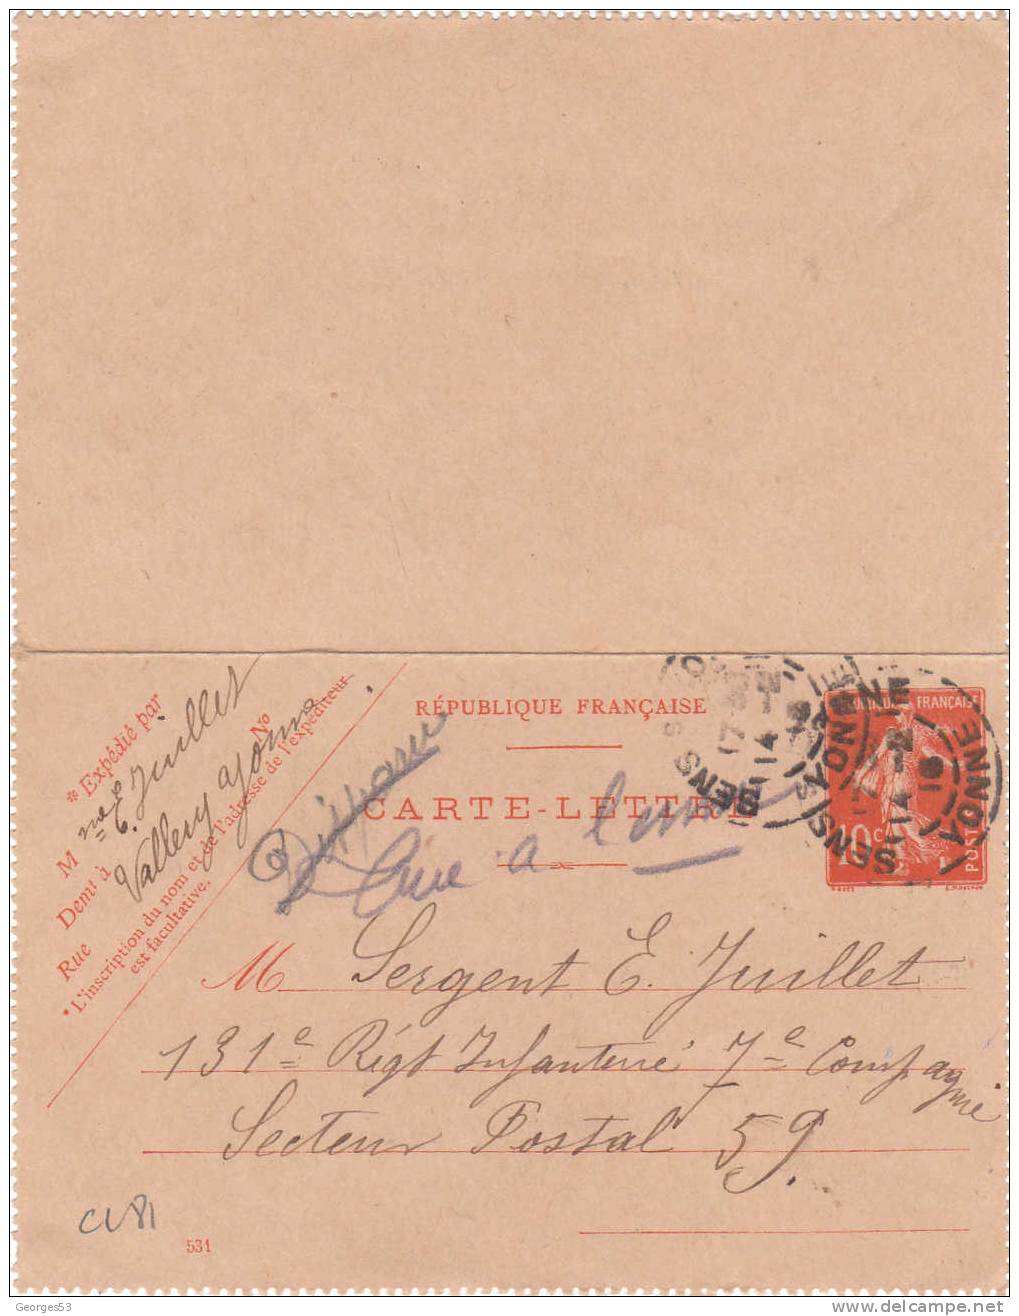 RÉPUBLIQUE FRANÇAISE
CARTE-LETTRE
* Expédié par
M me E. Juillet
Demt à Vallery Yonne
Rue N°
*L'inscription du nom et de l'adresse de l'expéditeur
est facultative.
Disparu
à l'envoi
SENS YONNE
17
14
SENS YONNE
14 -2
16
FRANÇAISE
10 c
POSTES
M Sergent E. Juillet
131e Régt Infanterie 7e Compagnie
Secteur Postal 59.
CL81
531
Georges53
www.delcampe.net